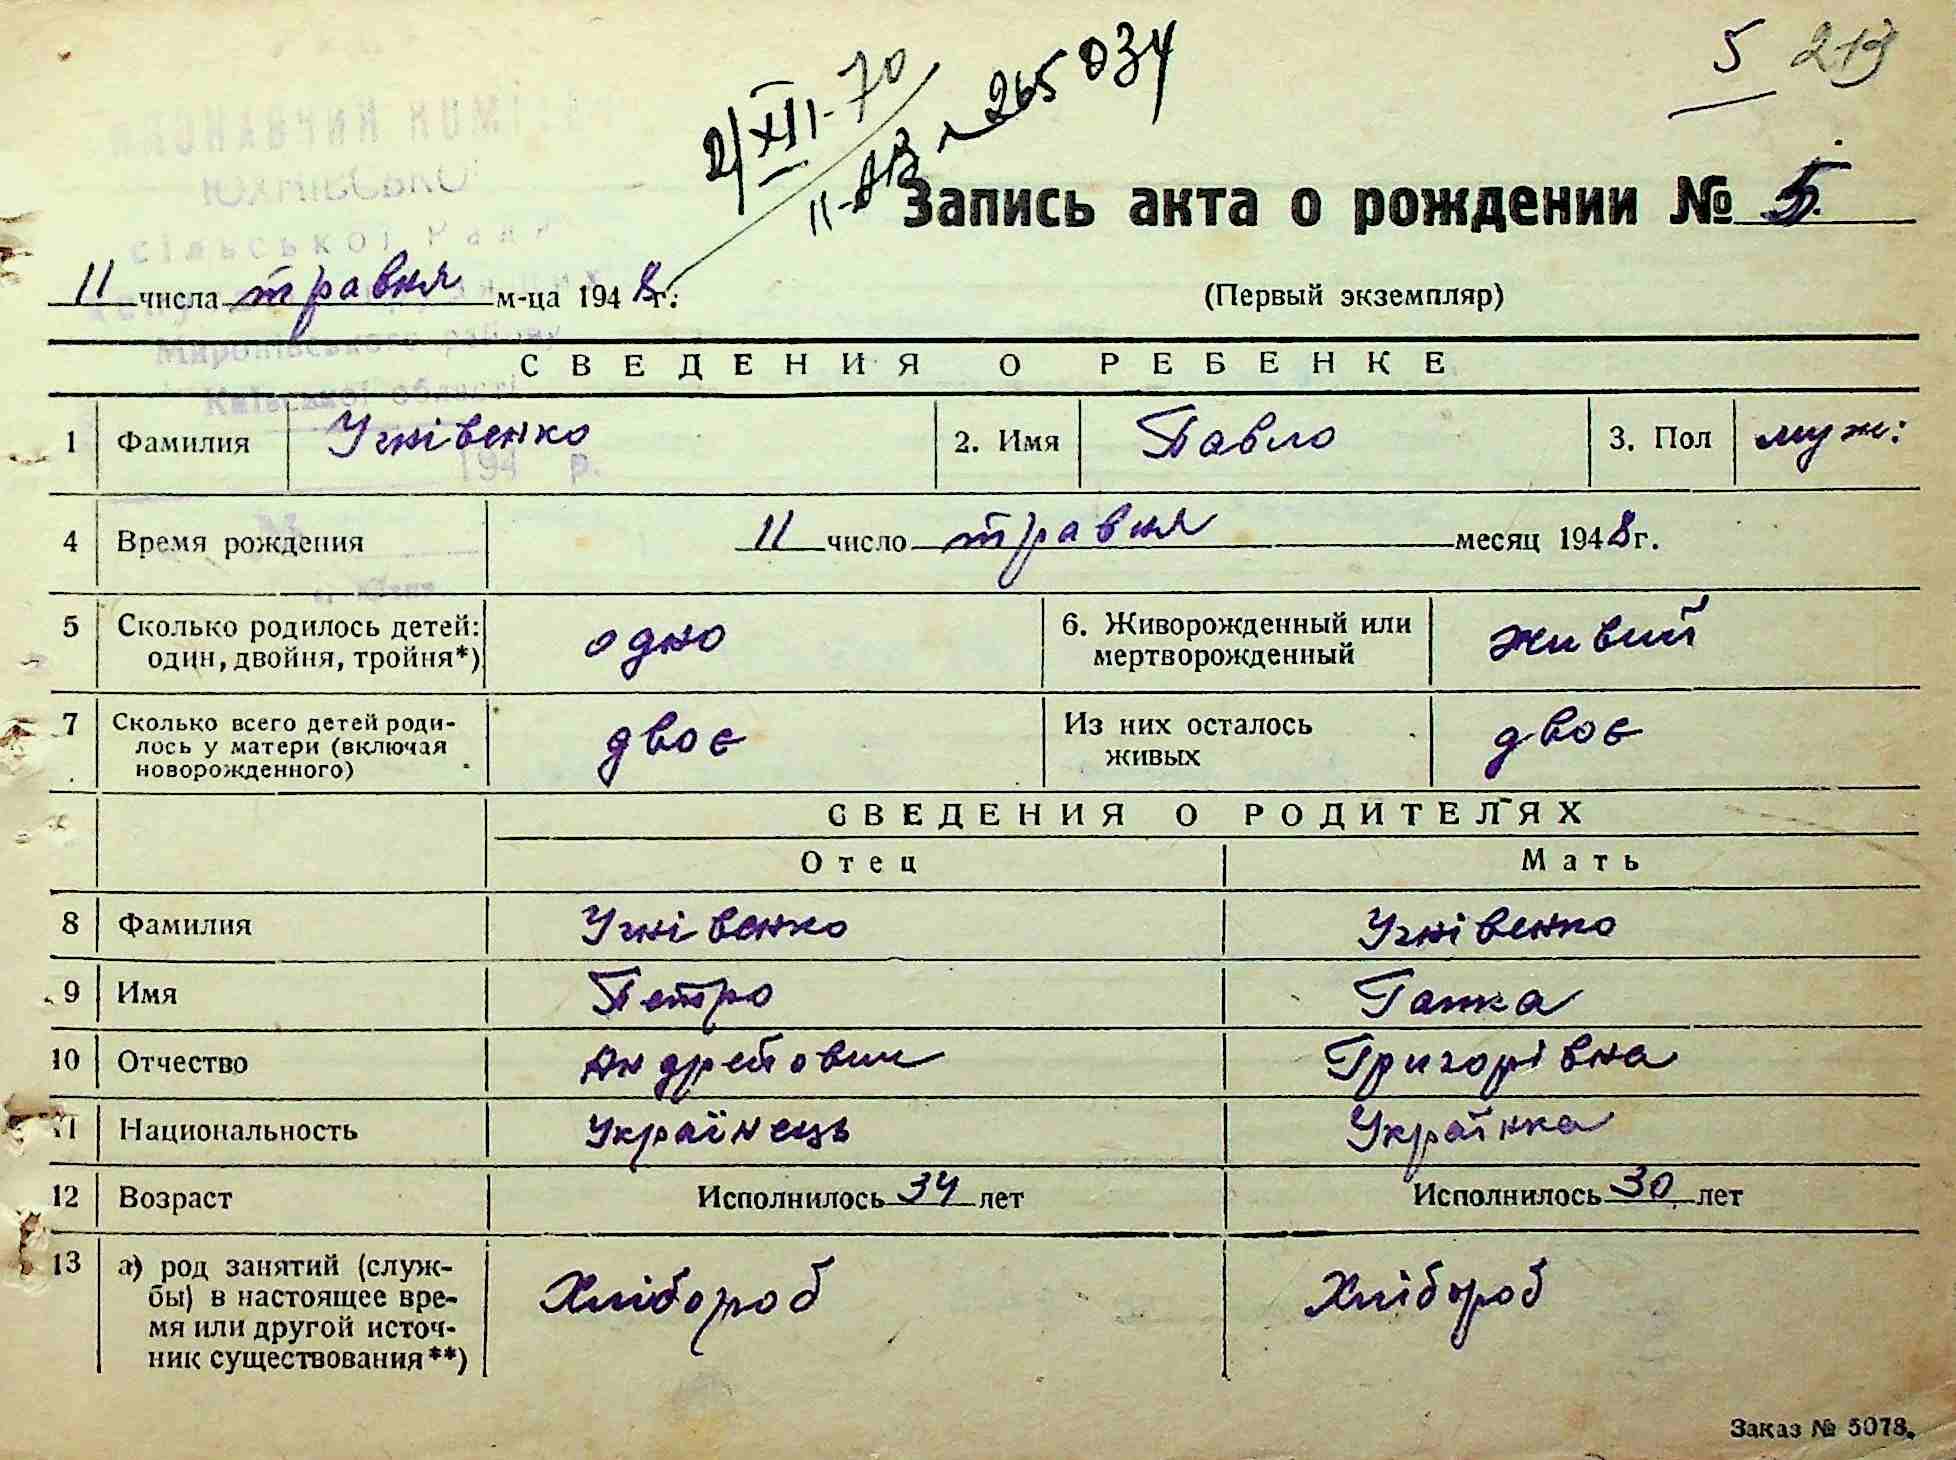 5 213
2/XII-70
II-АЗ № 265034
Запись акта о рождении № 5.
11 числа травня м-ца 1948 г.
(Первый экземпляр)
СВЕДЕНИЯ О РЕБЕНКЕ
1 Фамилия Угнівенко 2. Имя Павло 3. Пол муж:
4 Время рождения 11 число травня месяц 1948 г.
5 Сколько родилось детей: один, двойня, тройня*) одно 6. Живорожденный или мертворожденный живий
7 Сколько всего детей родилось у матери (включая новорожденного) двоє Из них осталось живых двоє
СВЕДЕНИЯ О РОДИТЕЛЯХ
Отец Мать
8 Фамилия Угнівенко Угнівенко
9 Имя Петро Ганка
10 Отчество Андрейович Григорівна
11 Национальность Українець Українка
12 Возраст Исполнилось 34 лет Исполнилось 30 лет
13 а) род занятий (служ-
бы) в настоящее вре-
мя или другой источ-
ник существования**) Хлібороб Хлібороб
Заказ № 5078.